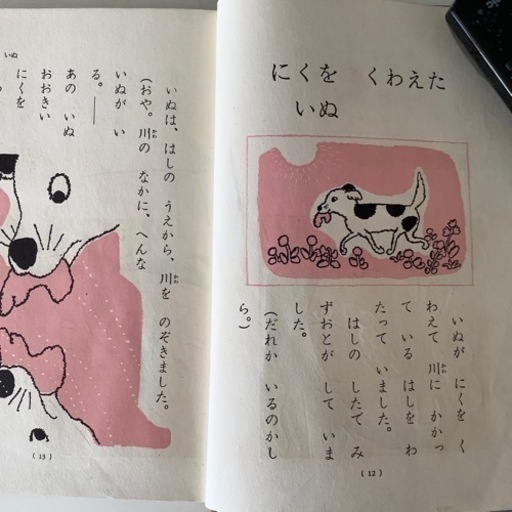 にくを くわえた
いぬ
いぬが にくを く
わえて 川に かかっ
て いる はしを わ
たって いました。
はしの したで み
ずおとが して いま
した。
(だれか いるのかし
ら。)
(12)
いぬは、はしの うえから、川を のぞきました。
かわ
(おや。川の なかに、へんな
かわ
いぬが い
る。——
あの いぬ
おおきい
にくを
いぬ
(13)